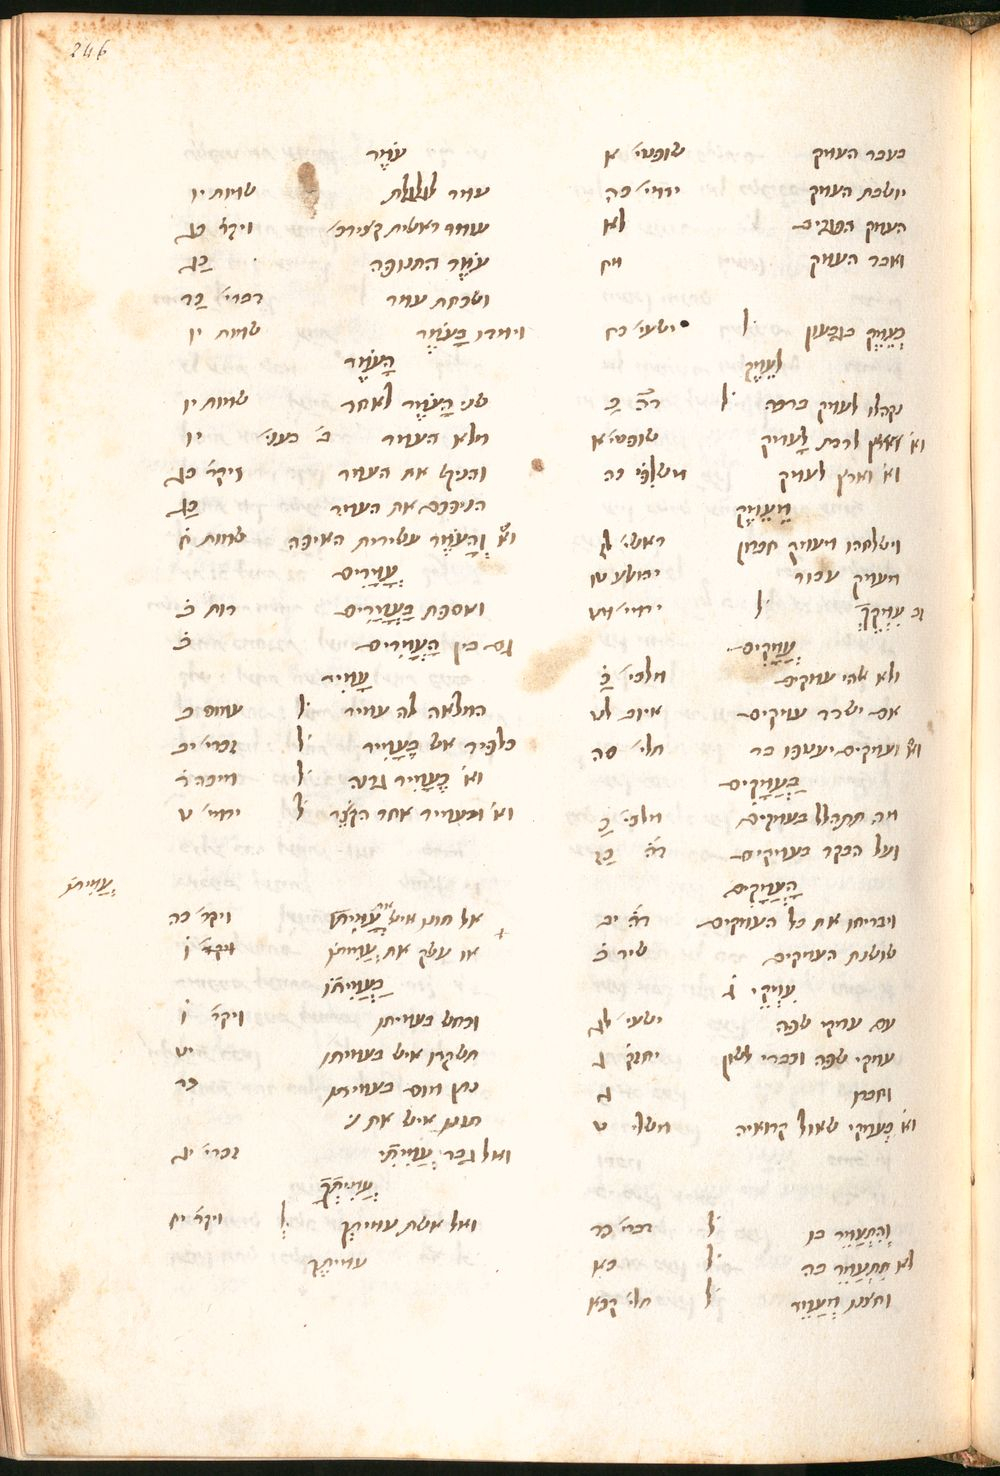 246
בעבר העמק שופטי׳ א
יושבת העמק ירמי׳ כה
העמק הפגרים לא
ואבד העמק מח
כְּעֵמֶק בגבעון ל׳ ישעי׳ כח
לְעֵמֶק
נקהלו לעמק ברכה ל׳ ד״ה ב
לרדת לָעמק שופטי׳ א
וא׳ וארץ לעמק
מֵעֵמֶק
וישלחהו מעמק חברון ראשי׳ לז
מעמק עכור יהושע טו
עִמְקֵךְ ל׳ ירמי׳ מט
עֲמָקִים
ולא אלהי עמקים מלכי׳ כ
אם ישדד עמקים איוב לט
וא׳ ועמקים יעטפו בר תלי׳ סה
בַּעֲמָקִים
מה תתהלל בעמקים
ועל הבקר בעמקים ד״ה כז
הָעֲמָקִים
ויבריחו את כל העמקים ד״ה יב
שושנת העמקים שיר ב
עִמְקֵי ג
עם עמקי שפה ישעי׳ לג
עמקי שפה וכבדי לשון יחזק׳ ג
וחברו ג
וא׳ בְּעמקי שאול קרואיה משלי׳ ט
וְהִתְעַמֵּר בו ל׳ דברי׳ כד
לא תִתְעַמֵּר בה ל׳ כא
מְעַמֵּר ל׳ תלי׳ קכט
עֹמֶר
עמר לגלגלת שמות יו
עומר ראשית קצירכ׳ ויקר׳ כג
עֹמֶר התנופה כג
ושכחת עמר דברי׳ כד
וימדו בָעֹמֶר שמות יו
הָעֹמֶר
שני הָעֹמֶר לאחד שמות יו
מלא העמר ב׳ בעני׳ יו
והניף את העמר ויקר׳ כג
הניפכם את העמר כג
וא׳ וְהָעֹמֶר עשירית האיפה שמות
עֳמָרִים
ואספתי בָעֳמָרִים רות ב
גם בין הָעֳמָרִים ב
עָמִיר
המלאה לה עמיר ל׳ עמוס ב
כלפיד אש בְּעָמִיר ל׳ זכרי׳ יב
וא׳ כֶּעָמִיר גרנה ל׳ מיכה ד
וא׳ וכעמיר אחר הקצר ל׳ ירמי׳ ט
עֲמִיתוֹ
אל תונו איש עֲמִיתוֹ ויקר׳ כה
או עשק את עֲמִיתוֹ ויקר׳ ו
בַּעֲמִיתוֹ
וכחש בעמיתו ויקר׳ ו
תשקרו איש בעמיתו יט
נתן מום בעמיתו כד
תונו איש את
ואל גבר עֲמִיתִי זכרי׳ יג
עֲמִיתְךָ
ואל אשת עמיתך ל׳ ויקר׳ יח
עמיתך